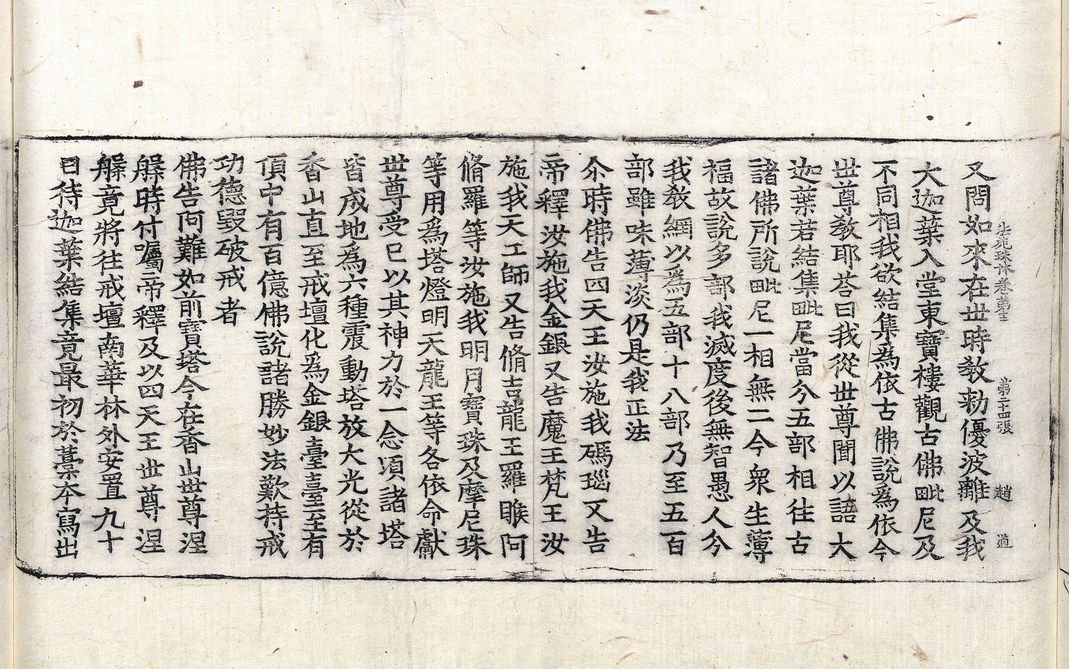 法苑珠林卷第 第二十四張 趙 道
又問如來在世時教勑優波離及我
大迦葉入堂東寶樓觀古佛毗尼及
不同相我欲結集為依古佛說為依今
世尊教耶荅曰我從世尊聞以語大
迦葉若結集毗尼當今五部相往古
諸佛所說毗尼一相無二今衆生薄
福故說多部我滅度後無智愚人分
我教網以為五部十八部乃至五百
部雖味薄淡仍是我正法
尒時佛告四天王汝施我碼瑙又告
帝釋汝施我金銀又告魔王梵王汝
施我天工師又告脩吉龍王羅睺阿
脩羅等汝施我明月寶珠及摩尼珠
等用為塔燈明天龍王等各依命獻
世尊受已以其神力於一念頃諸塔
皆成地為六種震動塔放大光從於
香山直至戒壇化為金銀臺臺至有
頂中有百億佛說諸勝妙法歎持戒
功德毀破戒者
佛告阿難如前寶塔今在香山世尊涅
槃時付囑帝釋及以四天王世尊涅
槃竟將往戒壇南華林外安置九十
日待迦葉結集竟最初於藁本寫出